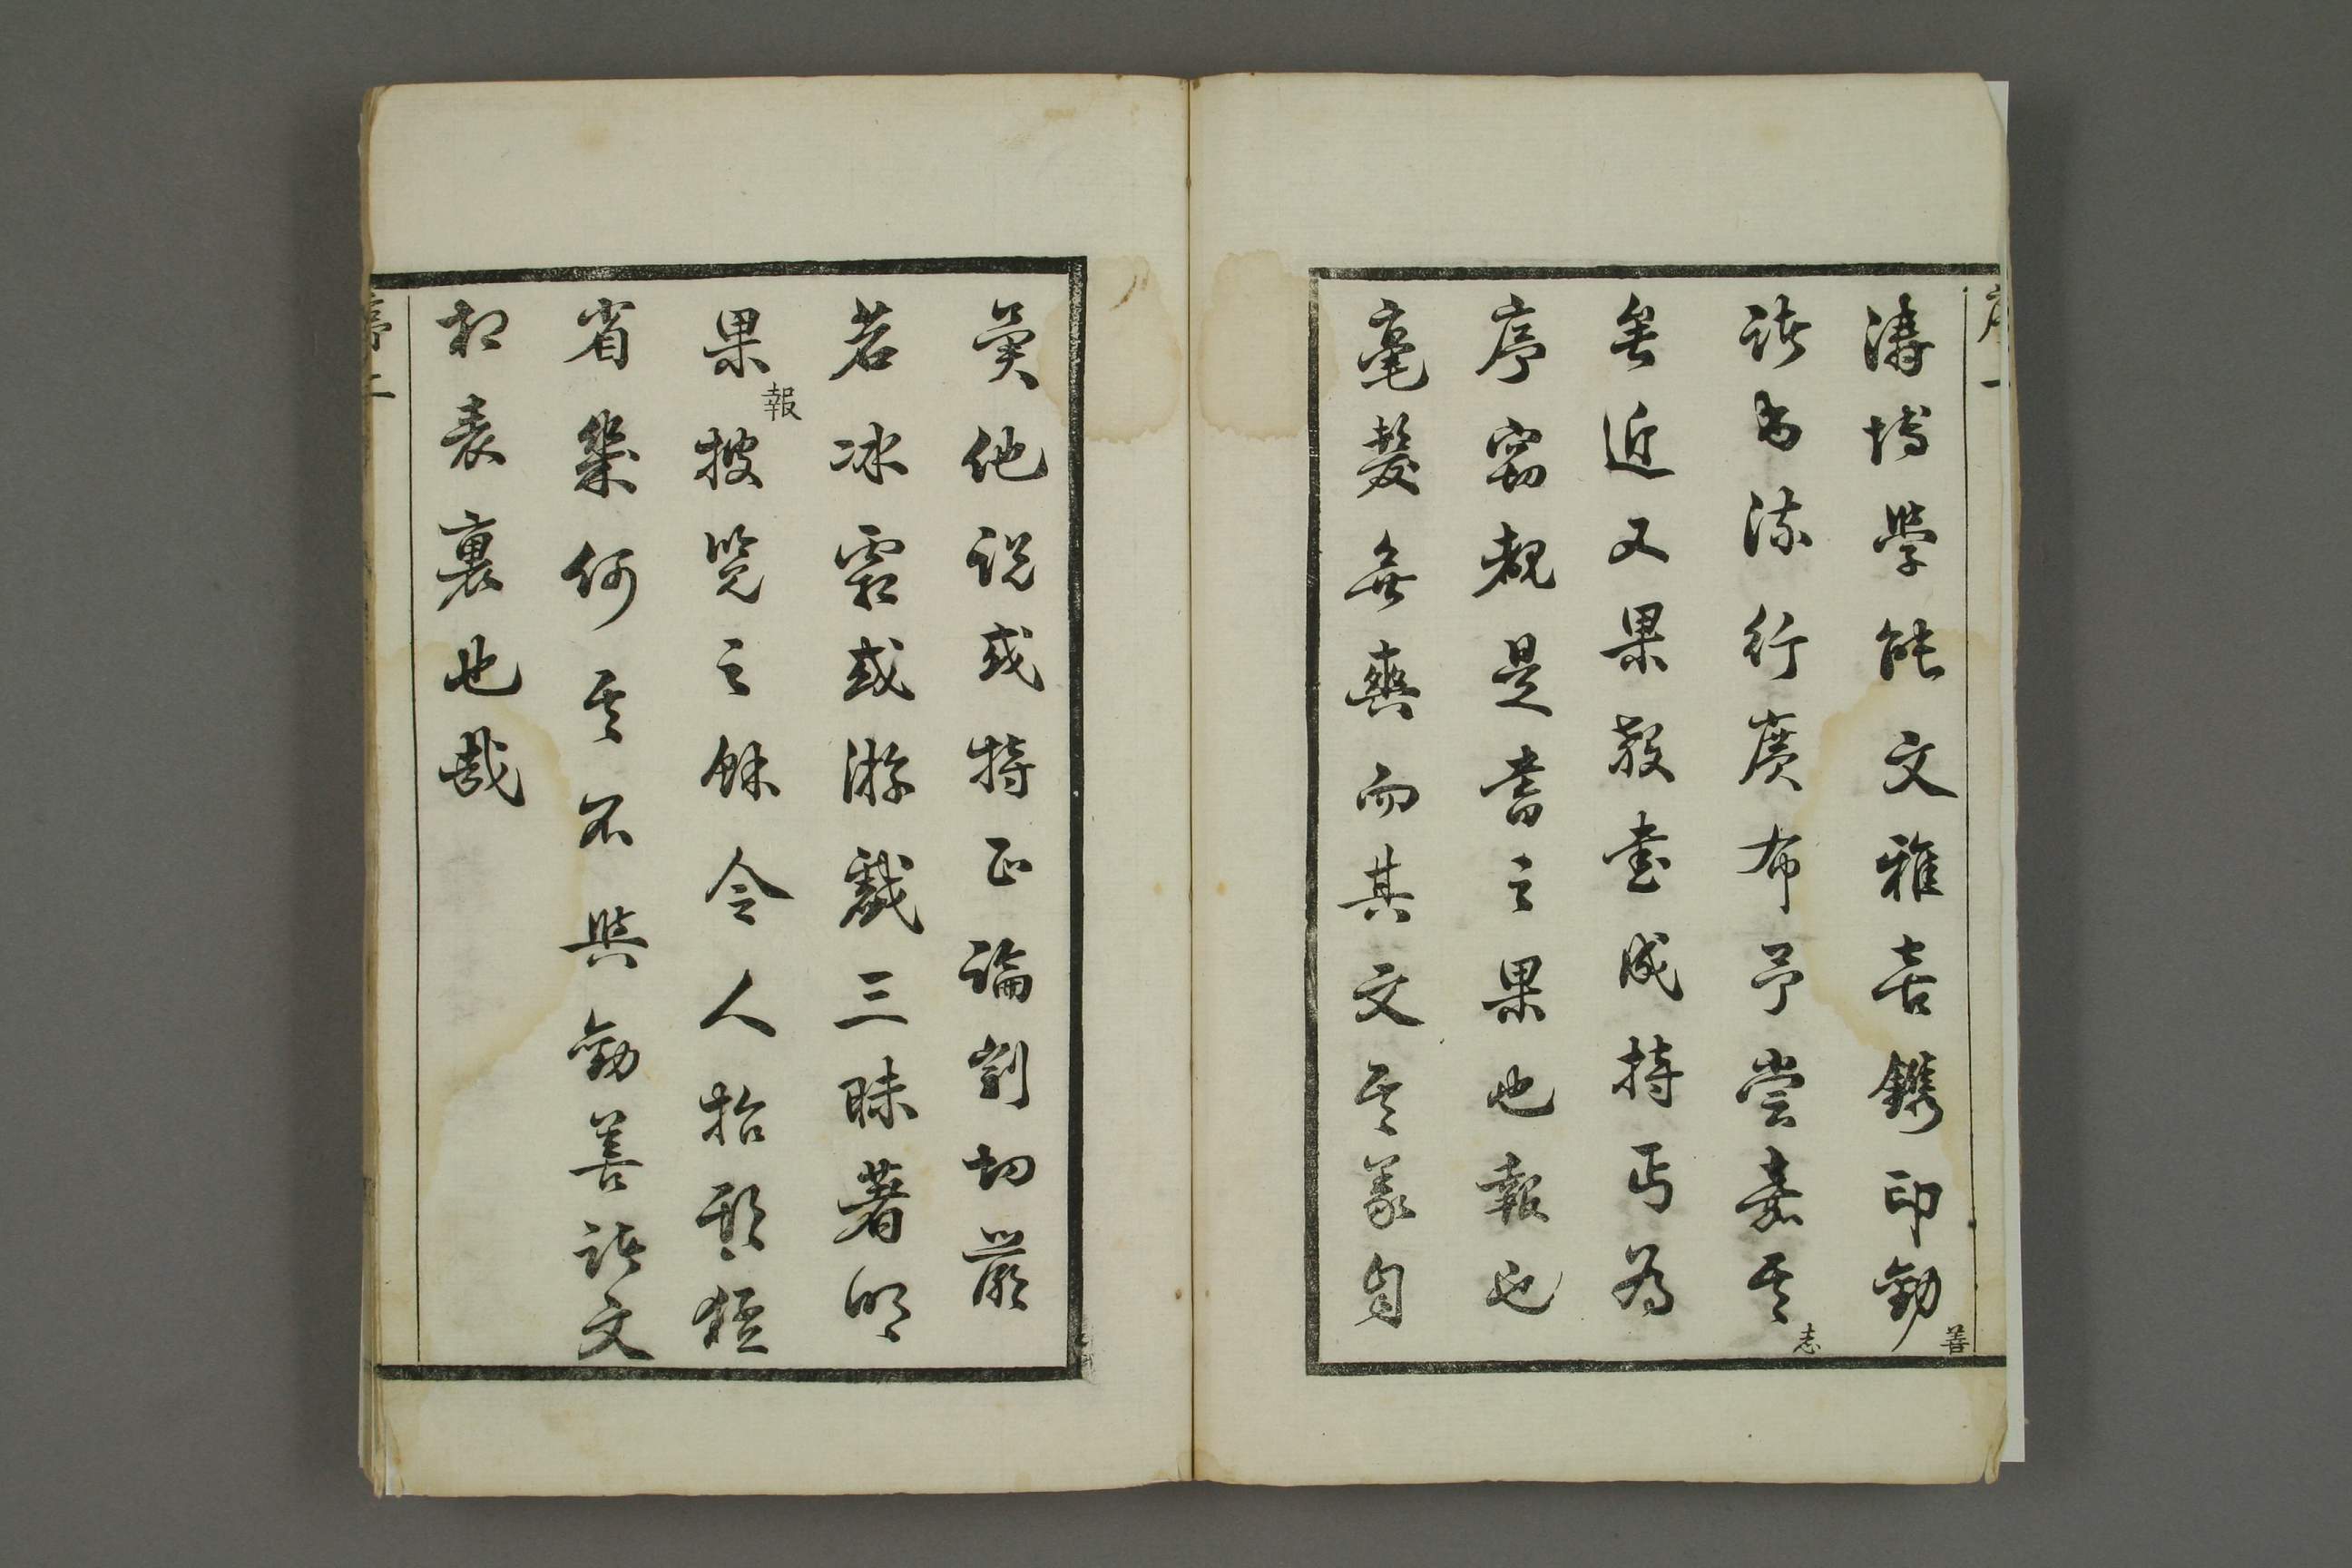 序一
濤博學能文雅喜鐫印勸善
諸書流行廣布予嘗嘉其志
矣近又果報書成持丐為
序竊觀是書之果也報也
毫髮無爽而其文其義自
異他說或持正論剴切嚴
若冰霜或游戲三昧著明
果報披覽之餘令人抬頭猛
省幾何其不與勸善諸文
相表裏也哉
序二